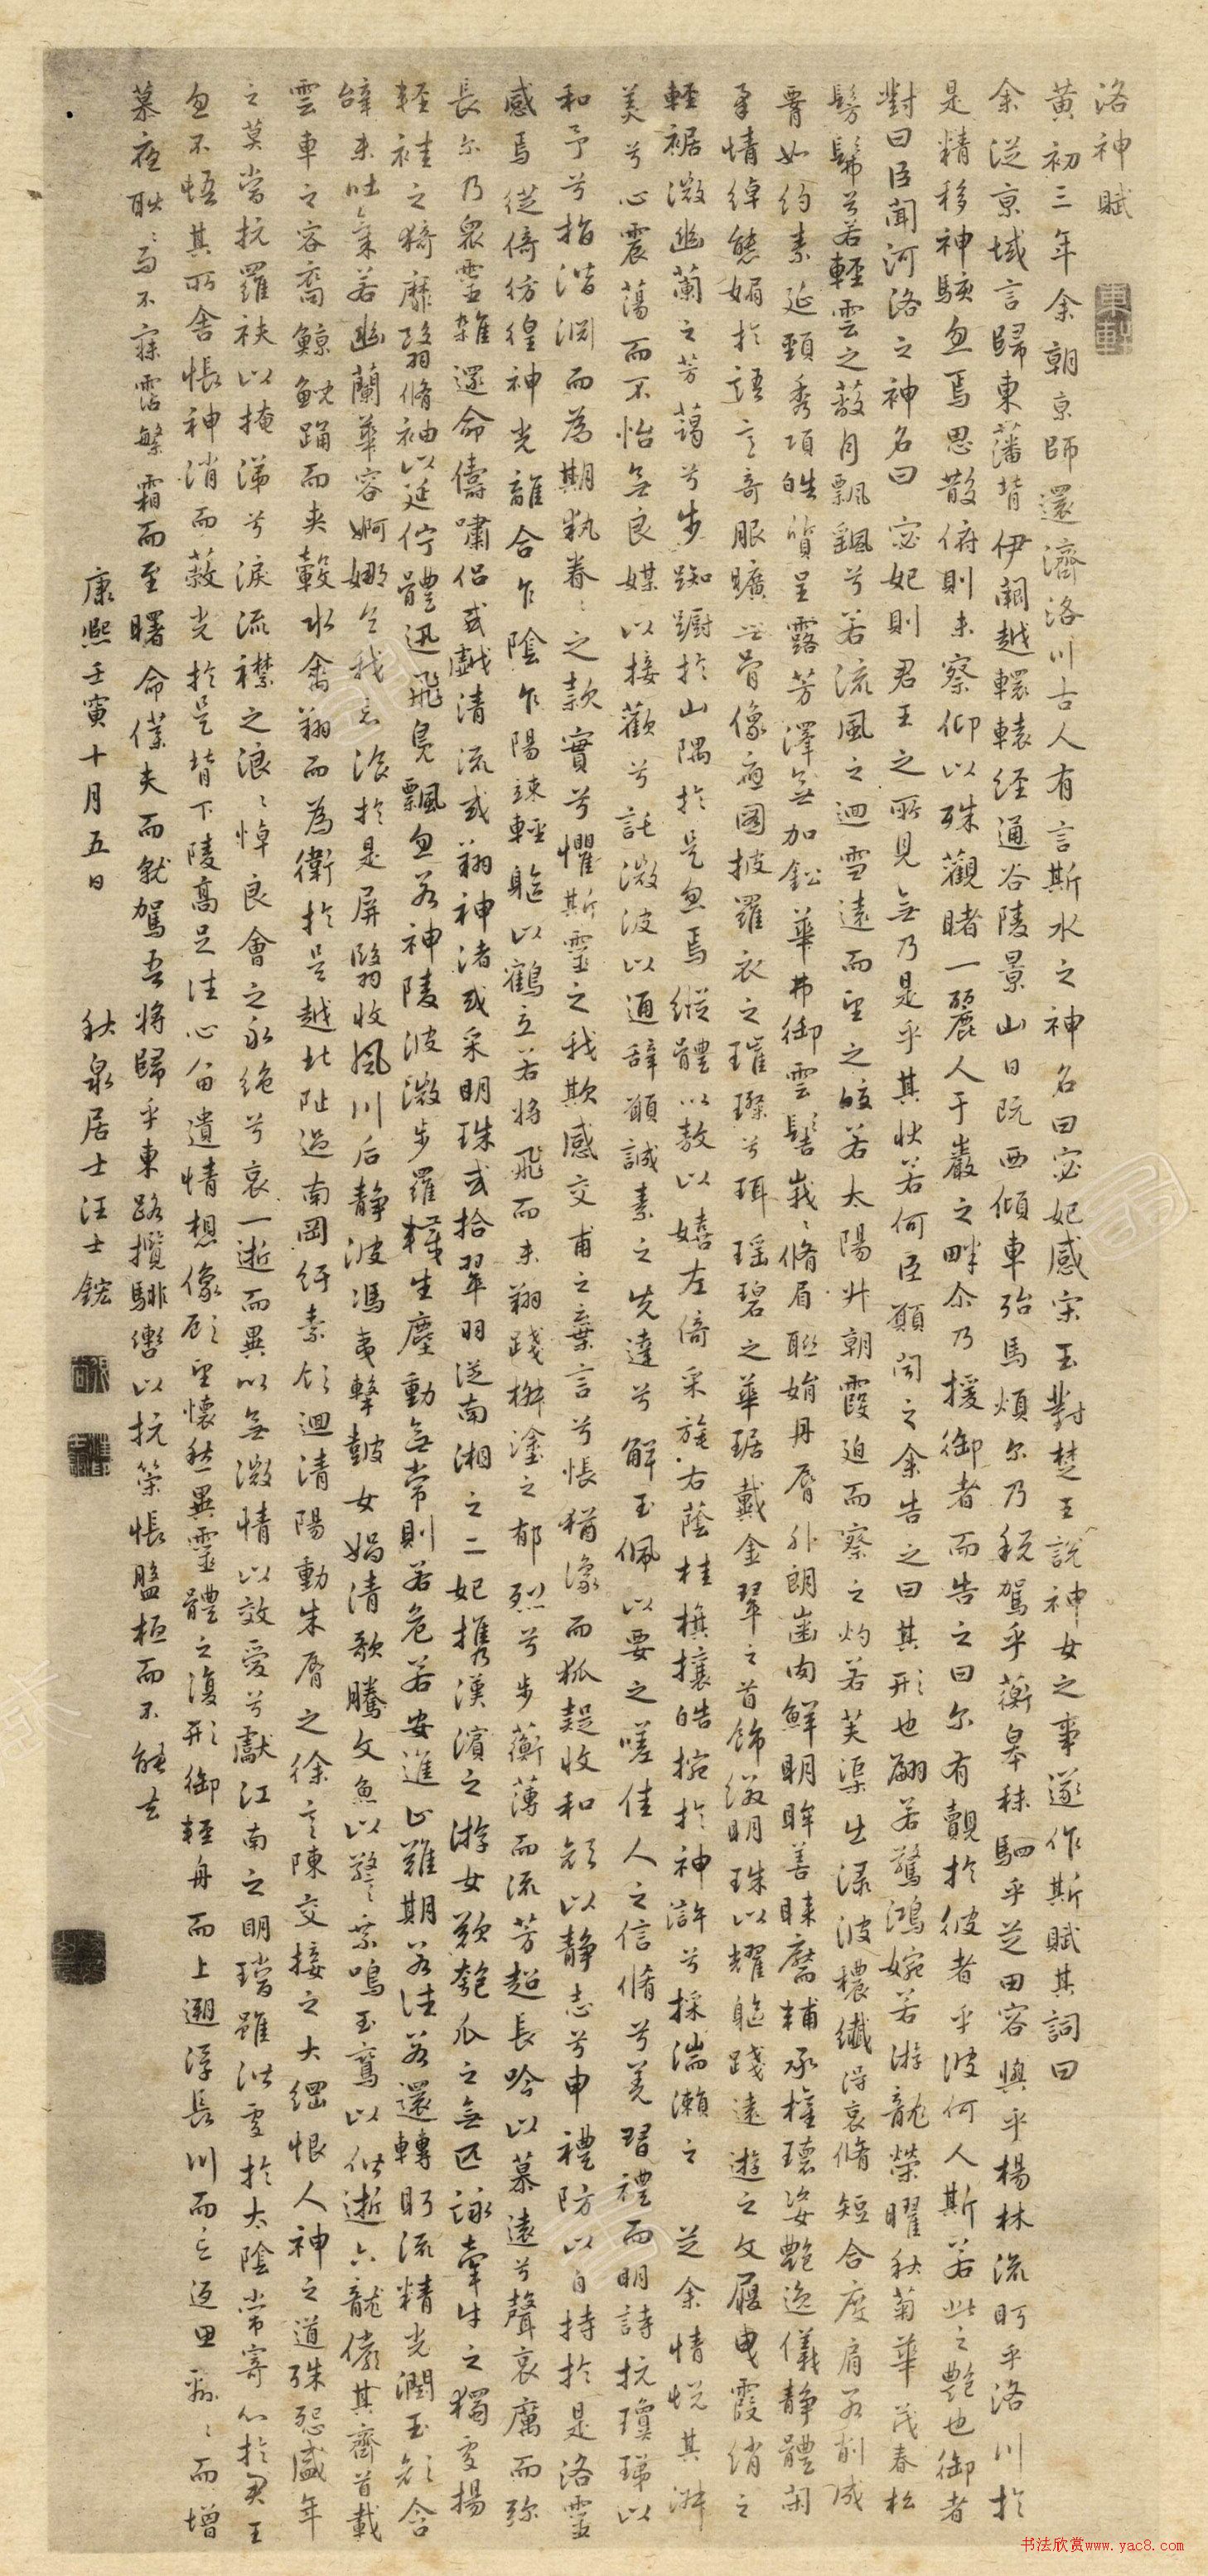 洛神賦
黃初三年余朝京師還濟洛川古人有言斯水之神名曰宓妃感宋玉對楚王說神女之事遂作斯賦其詞曰
余從京域言歸東藩背伊闕越轘轅經通谷陵景山日既西傾車殆馬煩尔乃稅駕乎蘅皋秣駟乎芝田容與乎楊林流眄乎洛川於
是精移神駭忽焉思散俯則未察仰以殊觀睹一麗人于巖之畔尒乃援御者而告之曰尔有覿於彼者乎彼何人斯若此之艷也御者
對曰臣聞河洛之神名曰宓妃則君王之所見無乃是乎其狀若何臣願聞之余告之曰其形也翩若驚鴻婉若游龍榮曜秋菊華茂春松
髣髴兮若輕雲之蔽月飄颻兮若流風之迴雪遠而望之皎若太陽升朝霞迫而察之灼若芙渠出淥波穠纖得衷脩短合度肩若削成
腰如約素延頸秀項皓質呈露芳澤無加鉛華弗御雲髻峩〻脩眉聯娟丹脣外朗齒內鮮明眸善睞靨輔承權瓌姿艷逸儀靜體閑
柔情綽態媚於語言奇服曠世骨像應圖披羅衣之璀璨兮珥瑶碧之華琚戴金翠之首飾綴明珠以耀軀踐遠遊之文履曳霞綃之
輕裾微幽蘭之芳藹兮步踟躕於山隅於是忽焉縱體以敖以嬉左倚采旄右蔭桂旗攘皓捥於神滸兮採湍瀨之 芝余情悅其淑
美兮心震蕩而不怡無良媒以接歡兮託微波以通辭願誠素之先達兮解玉佩以要之嗟佳人之信脩兮羌習禮而明詩抗瓊珶以
和予兮指潛淵而為期執眷〻之款實兮懼斯靈之我欺感交甫之棄言兮悵猶豫而狐疑收和顔以静志兮申禮防以自持於是洛靈
感焉徙倚彷徨神光離合乍陰乍陽竦輕軀以鶴立若將飛而未翔踐椒塗之郁烈兮步蘅薄而流芳超長吟以慕遠兮聲哀厲而弥
長尔乃衆靈雜遝命儔嘯侶或戲清流或翔神渚或采明珠或拾翠羽從南湘之二妃攜漢濱之游女歎匏瓜之無匹詠牽牛之獨處揚
輕袿之猗靡翳脩袖以延佇體迅飛鳧飄忽若神陵波微步羅韈生塵動無常則若危若安進止難期若往若還轉眄流精光潤玉顔含
辭未吐氣若幽蘭華容婀娜令我忘湌於是屏翳收風川后靜波馮夷擊鼓女媧清歌騰文魚以警乘鳴玉鸞以偕逝六龍儼其齊首載
雲車之容裔鯨鯢踊而夾轂水禽翔而為衛於是越北阯過南岡紆素領迴清陽動朱脣之徐言陳交接之大綱恨人神之道殊怨盛年
之莫當抗羅袂以掩涕兮淚流襟之浪〻悼良會之永絕兮哀一逝而異以無微情以效愛兮獻江南之明璫雖潛處於太陰常寄心於君王
忽不悟其所舍悵神消而蔽光於是背下陵高足往心留遺情想像顧望懷愁冀靈體之復形御輕舟而上遡浮長川而忘返思緜〻而增
慕夜耿〻而不寐霑繁霜而至曙命僕夫而就駕吾將歸乎東路攬騑轡以抗策悵盤桓而不能去
康熙壬寅十月五日 秋泉居士汪士鋐
书法欣赏www.yac8.com